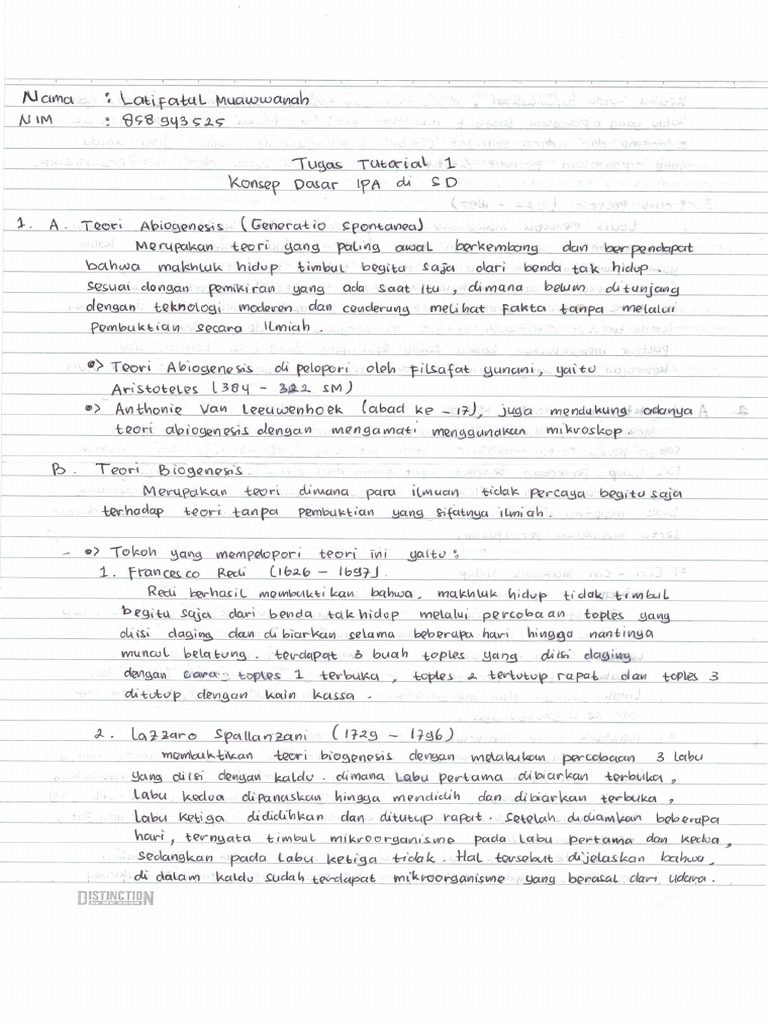 Nama : Latifatul Muawwanah
NIM : 858943525
Tugas Tutorial 1
Konsep Dasar IPA di SD
1. A. Teori Abiogenesis (Generatio Spontanea)
Merupakan teori yang paling awal berkembang dan berpendapat
bahwa makhluk hidup timbul begitu saja dari benda tak hidup.
sesuai dengan pemikiran yang ada saat itu, dimana belum ditunjang
dengan teknologi moderen dan cenderung melihat fakta tanpa melalui
pembuktian secara ilmiah.
•> Teori Abiogenesis di pelopori oleh filsafat yunani, yaitu
Aristoteles (384 - 322 SM)
•> Anthonie Van Leeuwenhoek (abad ke -17), juga mendukung adanya
teori abiogenesis dengan mengamati menggunakan mikroskop.
B. Teori Biogenesis
Merupakan teori dimana para ilmuan tidak percaya begitu saja
terhadap teori tanpa pembuktian yang sifatnya ilmiah.
- •> Tokoh yang mempelopori teori ini yaitu :
1. Francesco Redi (1626 - 1697).
Redi berhasil membuktikan bahwa, makhluk hidup tidak timbul
begitu saja dari benda tak hidup melalui percobaan toples yang
diisi daging dan di biarkan selama beberapa hari hingga nantinya
muncul belatung. terdapat 3 buah toples yang diisi daging
dengan cara : toples 1 terbuka, toples 2 tertutup rapat dan toples 3
ditutup dengan kain kassa.
2. Lazzaro Spallanzani (1729 - 1796)
membuktikan teori biogenesis dengan melakukan percobaan 3 labu
yang diisi dengan kaldu. dimana Labu pertama dibiarkan terbuka,
Labu kedua dipanaskan hingga mendidih dan dibiarkan terbuka,
Labu ketiga dididihkan dan ditutup rapat. Setelah didiamkan beberapa
hari, ternyata timbul mikroorganisme pada Labu pertama dan kedua,
sedangkan pada Labu ketiga tidak. Hal tersebut dijelaskan bahwa,
di dalam kaldu sudah terdapat mikroorganisme yang berasal dari udara.
DISTINCTION